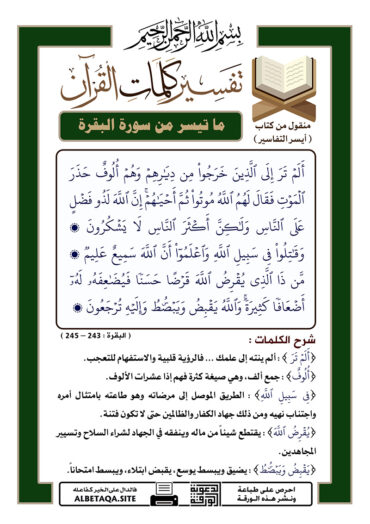 بِسْمِ اللَّهِ الرَّحْمَٰنِ الرَّحِيمِ
تفسير كلمات القرآن
ما تيسر من سورة البقرة
منقول من كتاب
( أيسر التفاسير )
أَلَمْ تَرَ إِلَى ٱلَّذِينَ خَرَجُواْ مِن دِيَٰرِهِمْ وَهُمْ أُلُوفٌ حَذَرَ
ٱلْمَوْتِ فَقَالَ لَهُمُ ٱللَّهُ مُوتُواْ ثُمَّ أَحْيَٰهُمْ ۚ إِنَّ ٱللَّهَ لَذُو فَضْلٍ
عَلَى ٱلنَّاسِ وَلَٰكِنَّ أَكْثَرَ ٱلنَّاسِ لَا يَشْكُرُونَ ۞
وَقَٰتِلُواْ فِى سَبِيلِ ٱللَّهِ وَٱعْلَمُوٓاْ أَنَّ ٱللَّهَ سَمِيعٌ عَلِيمٌ ۞
مَّن ذَا ٱلَّذِى يُقْرِضُ ٱللَّهَ قَرْضًا حَسَنًا فَيُضَٰعِفَهُۥ لَهُۥٓ
أَضْعَافًا كَثِيرَةً ۚ وَٱللَّهُ يَقْبِضُ وَيَبْصُۜطُ وَإِلَيْهِ تُرْجَعُونَ ۞
( البقرة : 243 – 245 )
شرح الكلمات :
﴿أَلَمْ تَرَ﴾ : ألم ينته إلى علمك ... فالرؤية قلبية والاستفهام للتعجب.
﴿أُلُوفٌ﴾ : جمع ألف، وهي صيغة كثرة فهم إذا عشرات الألوف.
﴿فِى سَبِيلِ ٱللَّهِ﴾ : الطريق الموصل إلى مرضاته وهو طاعته بامتثال أمره
واجتناب نهيه ومن ذلك جهاد الكفار والظالمين حتى لا تكون فتنة.
﴿يُقْرِضُ ٱللَّهَ﴾ : يقتطع شيئاً من ماله وينفقه في الجهاد لشراء السلاح وتسيير
المجاهدين.
﴿يَقْبِضُ وَيَبْصُۜطُ﴾ : يضيق ويبسط يوسع، يقبض ابتلاء، ويبسط امتحاناً.
احرص على طباعة
ونشر هذه الورقة
الدعوية
الورقة
فالدال على الخير كفاعله
ALBETAQA.SITE